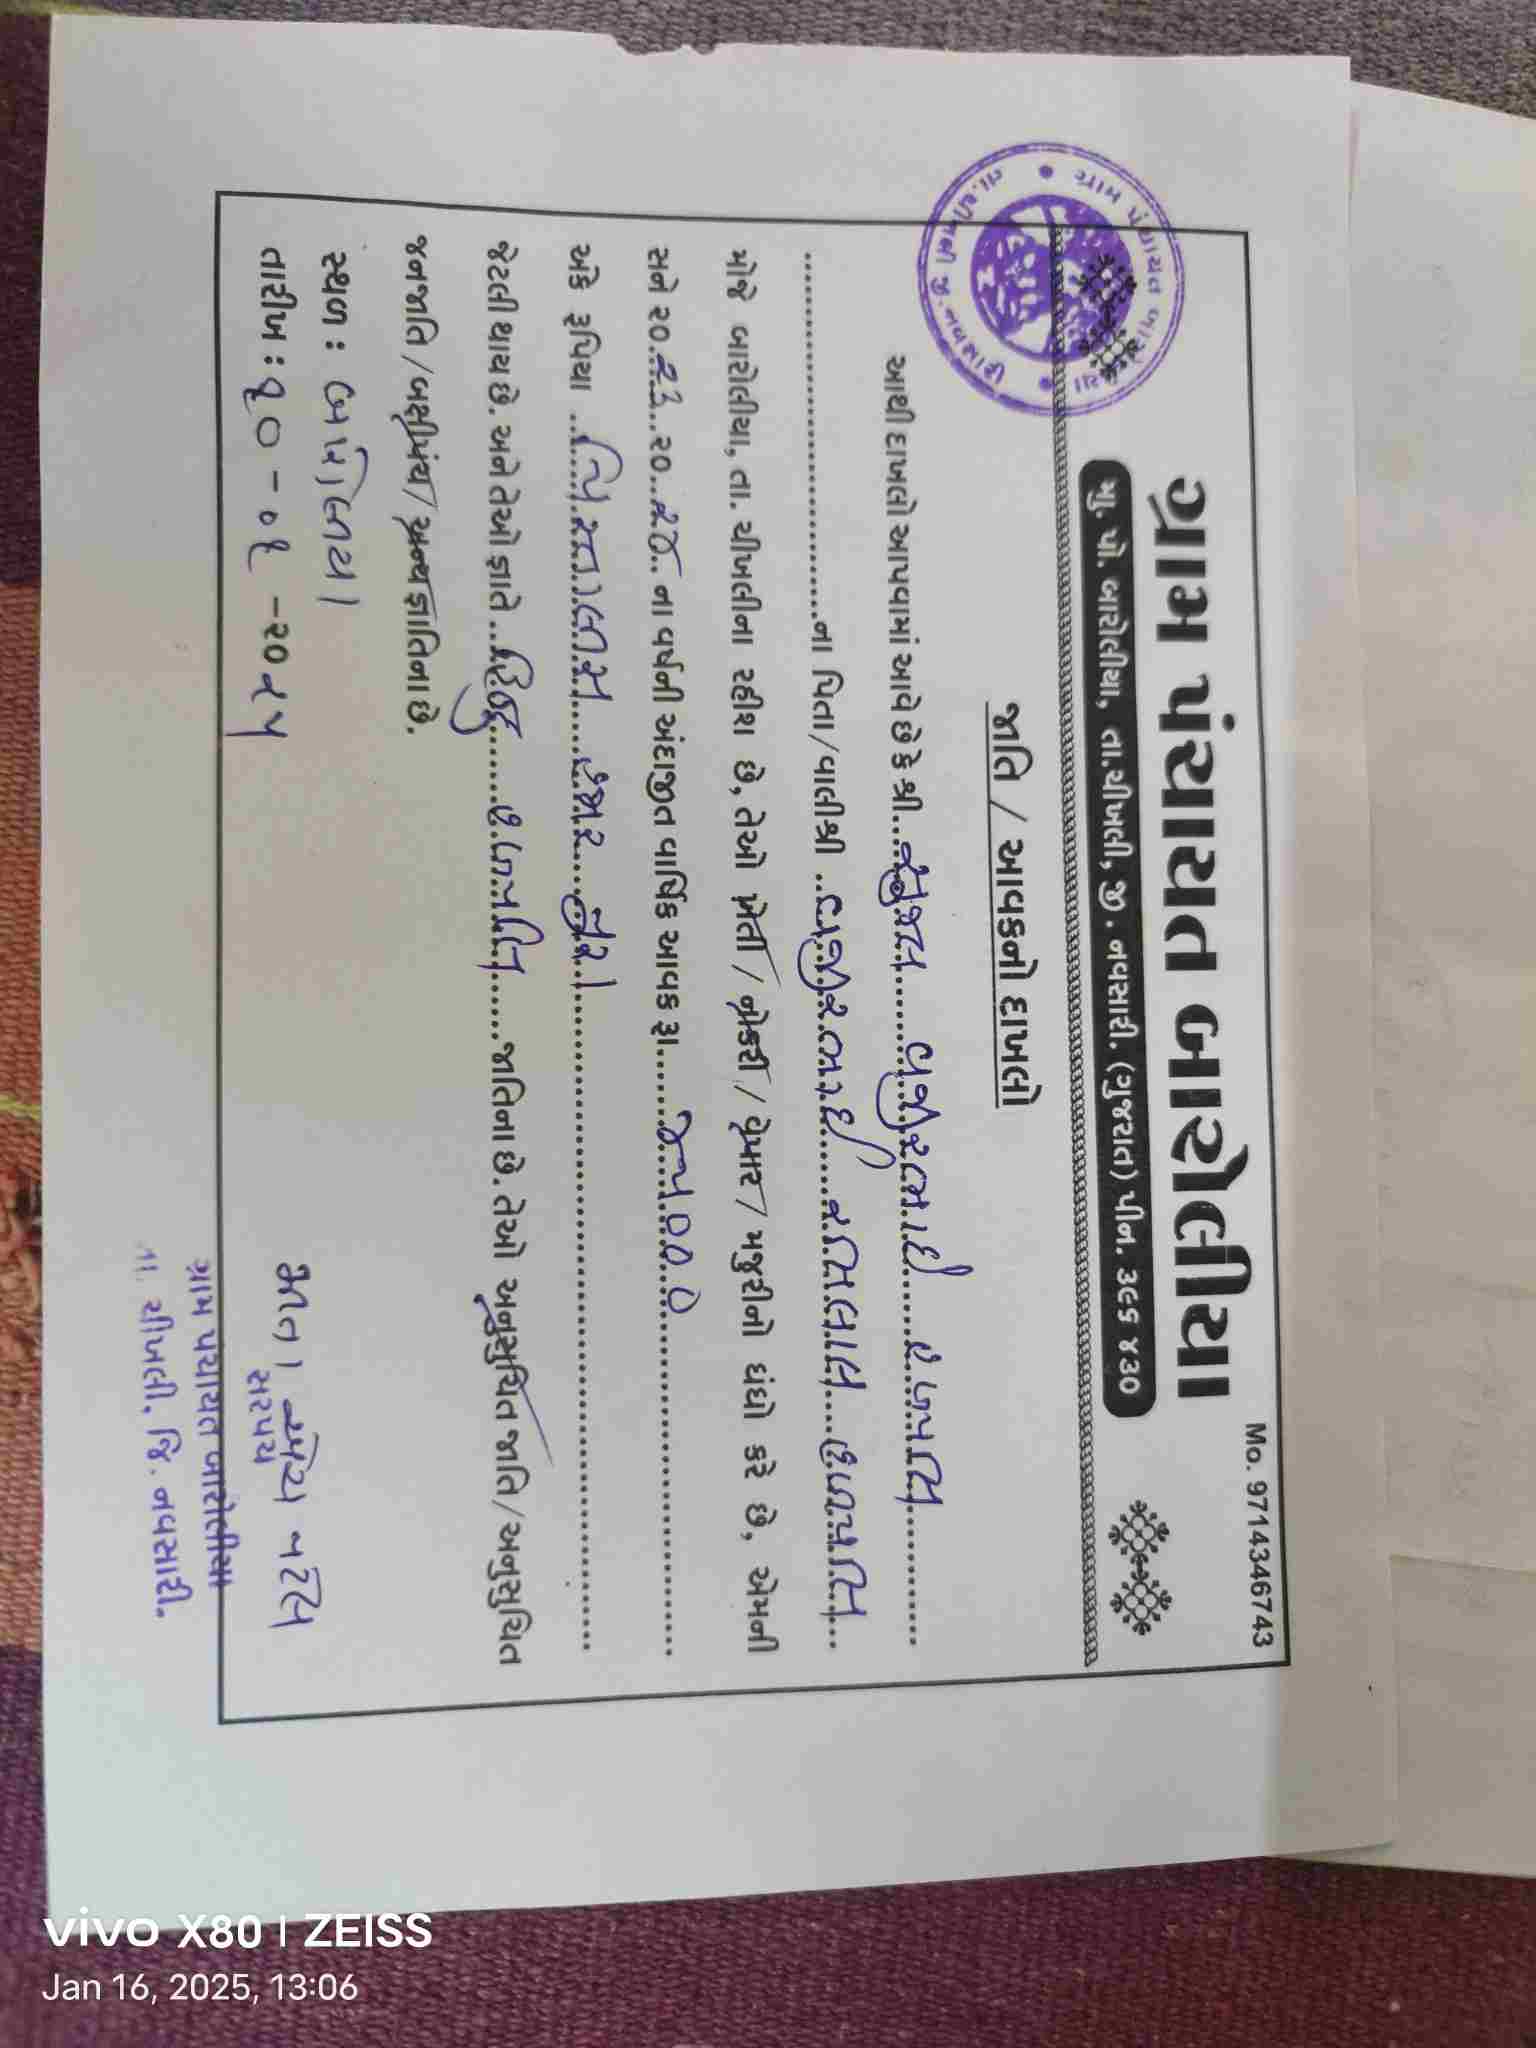 Mo. 9714346743
ગ્રામ પંચાયત બારોલીયા
મુ. પો. બારોલીયા, તા.ચીખલી, જી. નવસારી. (ગુજરાત) પીન. ૩૯૬ ૪૩૦
જાતિ / આવકનો દાખલો
આથી દાખલો આપવામાં આવે છે કે શ્રી
ના પિતા/વાલીશ્રી
મોજે બારોલીયા, તા. ચીખલીના રહીશ છે, તેઓ ખેતી/ નોકરી/ વેપાર/ મજુરીનો ધંધો કરે છે, એમની
સને ૨૦ ૨૩ ૨૦ ૨૪ ના વર્ષની અંદાજીત વાર્ષિક આવક રૂા. ૪૫૦૦૦
અંકે રૂપિયા પિસ્તાલીસ હજાર પુરા
જેટલી થાય છે. અને તેઓ જ્ઞાતે હિન્દુ જાતિના છે. તેઓ અનુસુચિત જાતિ/અનુસુચિત
જનજાતિ/બક્ષીપંચ/અન્યજ્ઞાતિના છે.
સ્થળ : બારોલીયા
તારીખ : ૧૦ - ૦૧ -૨૦૨૫
સરપંચ
ગ્રામ પંચાયત બારોલીયા
તા. ચીખલી, જિ. નવસારી.
vivo X80 | ZEISS
Jan 16, 2025, 13:06